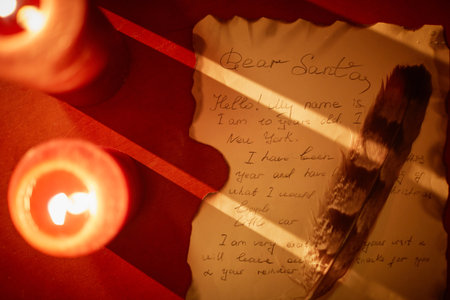 Dear Santa,
Hello! My name is
I am 10 years old I
New York.
I have been
year and have
what I would
little car
I am very your visit &
will leave snacks for you
& your reindeer